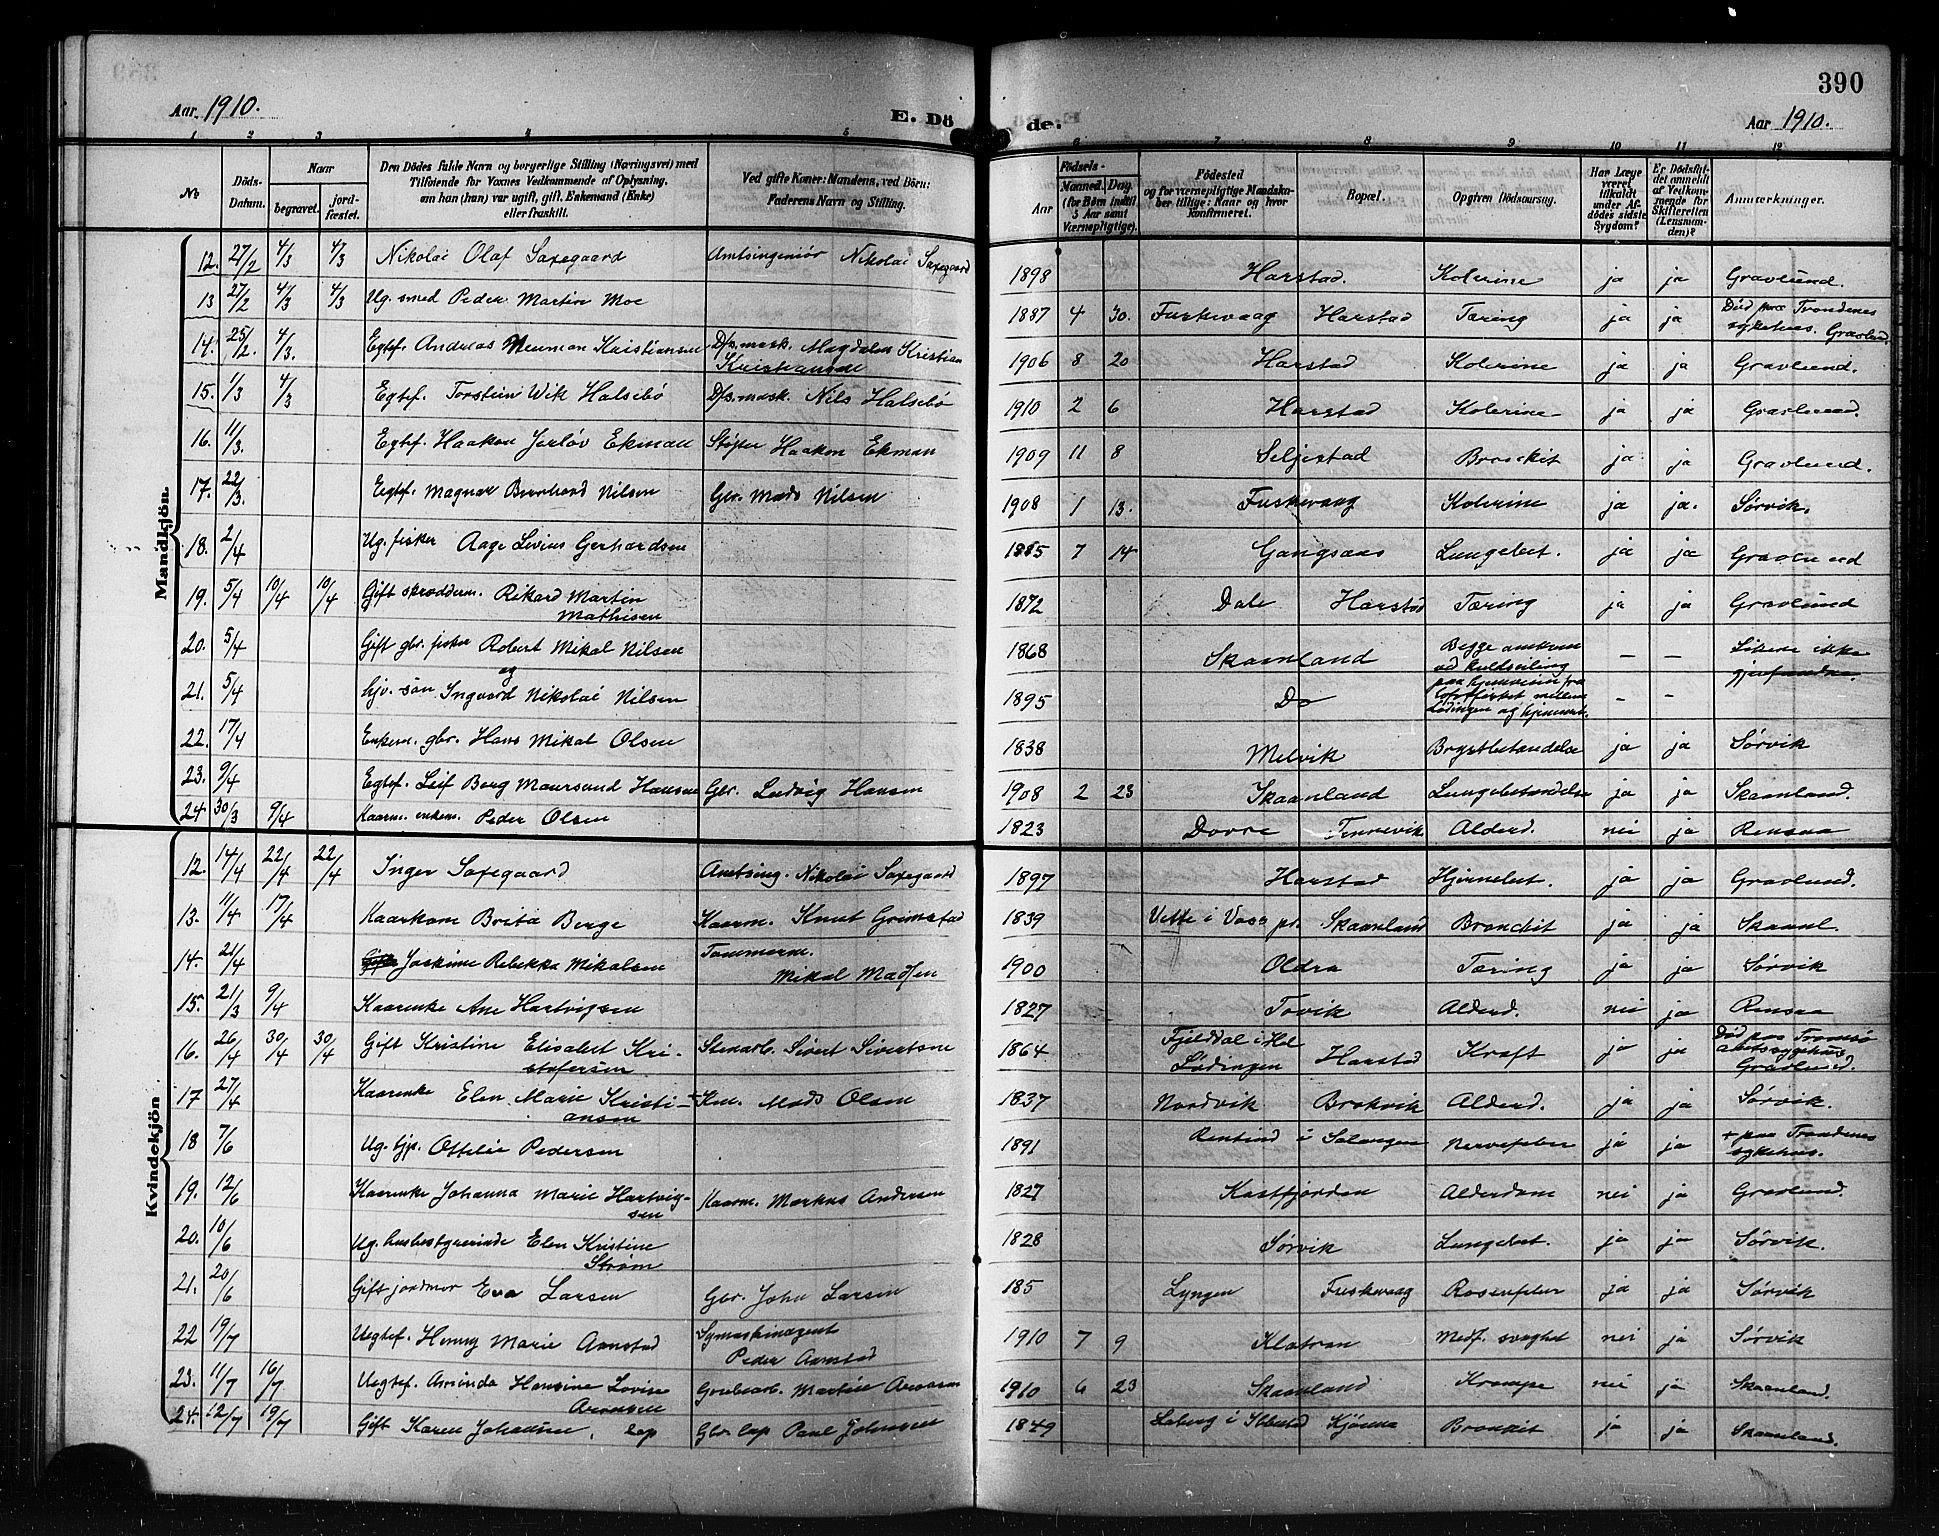 390
Aar 1910.
E. Dö de.
Aar 1910.
1 2 3 4 5 6 7 8 9 10 11 12
No
Döds-Datum.
Naar
begravet.
jord-fæstet.
Den Dödes fulde Navn og borgerlige Stilling (Næringsvei) med
Tilføiende for Voxnes Vedkommende af Oplysning,
om han (hun) var ugift, gift, Enkemand (Enke)
eller fraskilt.
Ved gifte Koner: Mandens, ved Börn:
Faderens Navn og Stilling.
Födsels-
Aar
Maaned. Dag.
(for Börn indtil
5 Aar samt
Værnepligtige).
Födested
og for værnepligtige Mandska-
ber tillige: Naar og hvor
konfirmeret.
Bopæl.
Opgiven Dödsaarsag.
Har Læge
været
tilkaldt
under Af-
dödes sidste
Sygdom?
Er Dödsfal-
det anmeldt
af Vedkom-
mende for
Skifteretten
(Lensman-
den)?
Anmærkninger.
Mandkjön.
12. 27/2 4/3 4/3 Nikolai Olaf Saxegaard Amtsingeniør Nikolai Saxegaard 1898 Harstad. Kolerine ja ja Gravlund.
13 27/2 4/3 4/3 Ug. smed Peder Martin Moe 1887 4 30. Fuskevaag Harstad Tæring ja ja Död paa Trondenes sykehus. Gravlund.
14. 25/2. 4/3. Egtef. Andreas Neuman Kristiansen D/s.mask. Magdalon Kristian Kristiansen 1906 8 20 Harstad Kolerine ja ja Gravlund.
15. 1/3 4/3 Egtef. Torstein Wik Halsebö D/s.mask. Nils Halsebö 1910 2 6 Harstad Kolerine ja ja Gravlund.
16. 11/3. Egtef. Haakon Jarlöv Ekman Haakon Ekman 1909 11 8 Seljestad Bronkit ja ja Gravlund.
17. 22/3. Egtef. Magnar Bernhard Nilsen Gbr. Mads Nilsen 1908 1 13. Fuskevaag Kolerine ja ja. Sørvik.
18. 2/4 Ug. fisker Aage Livius Gerhardsen 1885 7 14 Gangsaas Lungebet. ja ja Gravlund
19. 5/4 10/4 10/4 Gift skrædderm. Rikard Martin Mathisen 1872 Dale Harstad Tæring ja ja Gravlund
20. 5/4 Gift gbr. fisker Robert Mikal Nilsen 1868 Skaanland Begge omkom ved kuldseiling — — Likene ikke gjenfundne.
og
21. 5/4 hjv. søn Ingvard Nikolai Nilsen 1895 Do paa hjemreisen fra Lofotfisket mellem Lødingen og hjemmet. — —
22. 17/4 Enkem. gbr. Hans Mikal Olsen 1838 Melvik Brystbetændelse ja ja Sørvik
23. 9/4 Egtef. Leif Berg Maursund Hansen Gbr. Ludvig Hansen 1908 2 23 Skaanland Lungebetændelse ja ja Skaanland.
24 30/3 9/4 Kaarm. enkem. Peder Olsen 1823 Dovre Tennevik Alderd. nei ja Rensaa
Kvindekjön
12. 14/4 22/4 22/4 Inger Saxegaard Amtsing. Nikolai Saxegaard 1897 Harstad Hjernebet. ja ja Gravlund.
13. 11/4 17/4 Kaarkone Brita Berge Kaarm. Knut Grimstad 1839 Vette i Vaage pr. Skaanland Bronkit ja ja Skaanl.
14. 21/4 Joakime Rebekka Mikalsen Tømmerm. Mikal Madsen 1900 Oldra Tæring ja ja Sørvik
15. 21/3 9/4 Kaarenke Ane Hartvigsen 1827 Tovik Alderd. nei ja Rensaa
16. 26/4 30/4 30/4 Gift Kristine Elisabet Kri-stofersen Stenarb. Sivert Sivertsen 1864 Fjelddal i Hol Lødingen Harstad Kræft ja ja Död paa Tromsø amtssygehus Gravlund.
17 27/4 Kaarenke Elen Marie Kristi-ansen Km. Mads Olsen 1837 Nordvik Brokvik Alderd. ja ja Sørvik.
18 7/6 Ug. tjp. Ottilie Pedersen 1891 i Salangen Nervefeber ja ja + paa Trondenes sykehus.
19. 12/6 Kaarenke Johanna Marie Hartvig-sen Kaarm. Markus Andersen 1827 Kastfjorden Alderdom nei ja Gravlund.
20. 10/6 Ug. husbestyrerinde Elen Kristine Strøm 1828 Sørvik Lungebet. ja ja Sørvik.
21. 20/6 Gift jordmor Eva Larsen Gbr. John Larsen 185 Lyngen Fuskevaag Rosenfeber ja ja Sørvik
22 19/7 Uegtef. Henny Marie Aanstad Symaskinagent Peder Aanstad 1910 7 9 Klatran Medf. svaghet nei ja Sørvik
23. 11/7 16/7 Uegtef. Aminda Hansine Lovise Aronsen Grubearb. Martin Aronsen 1910 6 23 Skaanland Krampe nei ja Skaanland.
24. 12/7 19/7 Gift Karen Johansen, lap Gbr. lap Paul Johnsen 1849 i Ibbestad Kjönna Bronkit ja ja Skaanland.